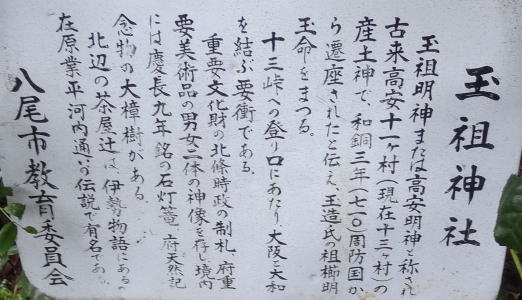 玉祖神社
玉祖明神または高安明神と称され
古来高安十一ヶ村(現在十三ヶ村)の
産土神で、和銅三年(七一〇)周防国か
ら遷座されたと伝え、玉造氏の祖櫛明
玉命をまつる。
十三峠への登り口にあたり大阪と大和
を結ぶ要衝である。
重要文化財の北條時政の制札、府重
要美術品の男女二体の神像を存し境内
には慶長九年銘の石灯篭、府天然記
念物の大樟樹がある。
北辺の茶屋辻は、伊勢物語にある
在原業平河内通いの伝説で有名である。
八尾市教育委員会